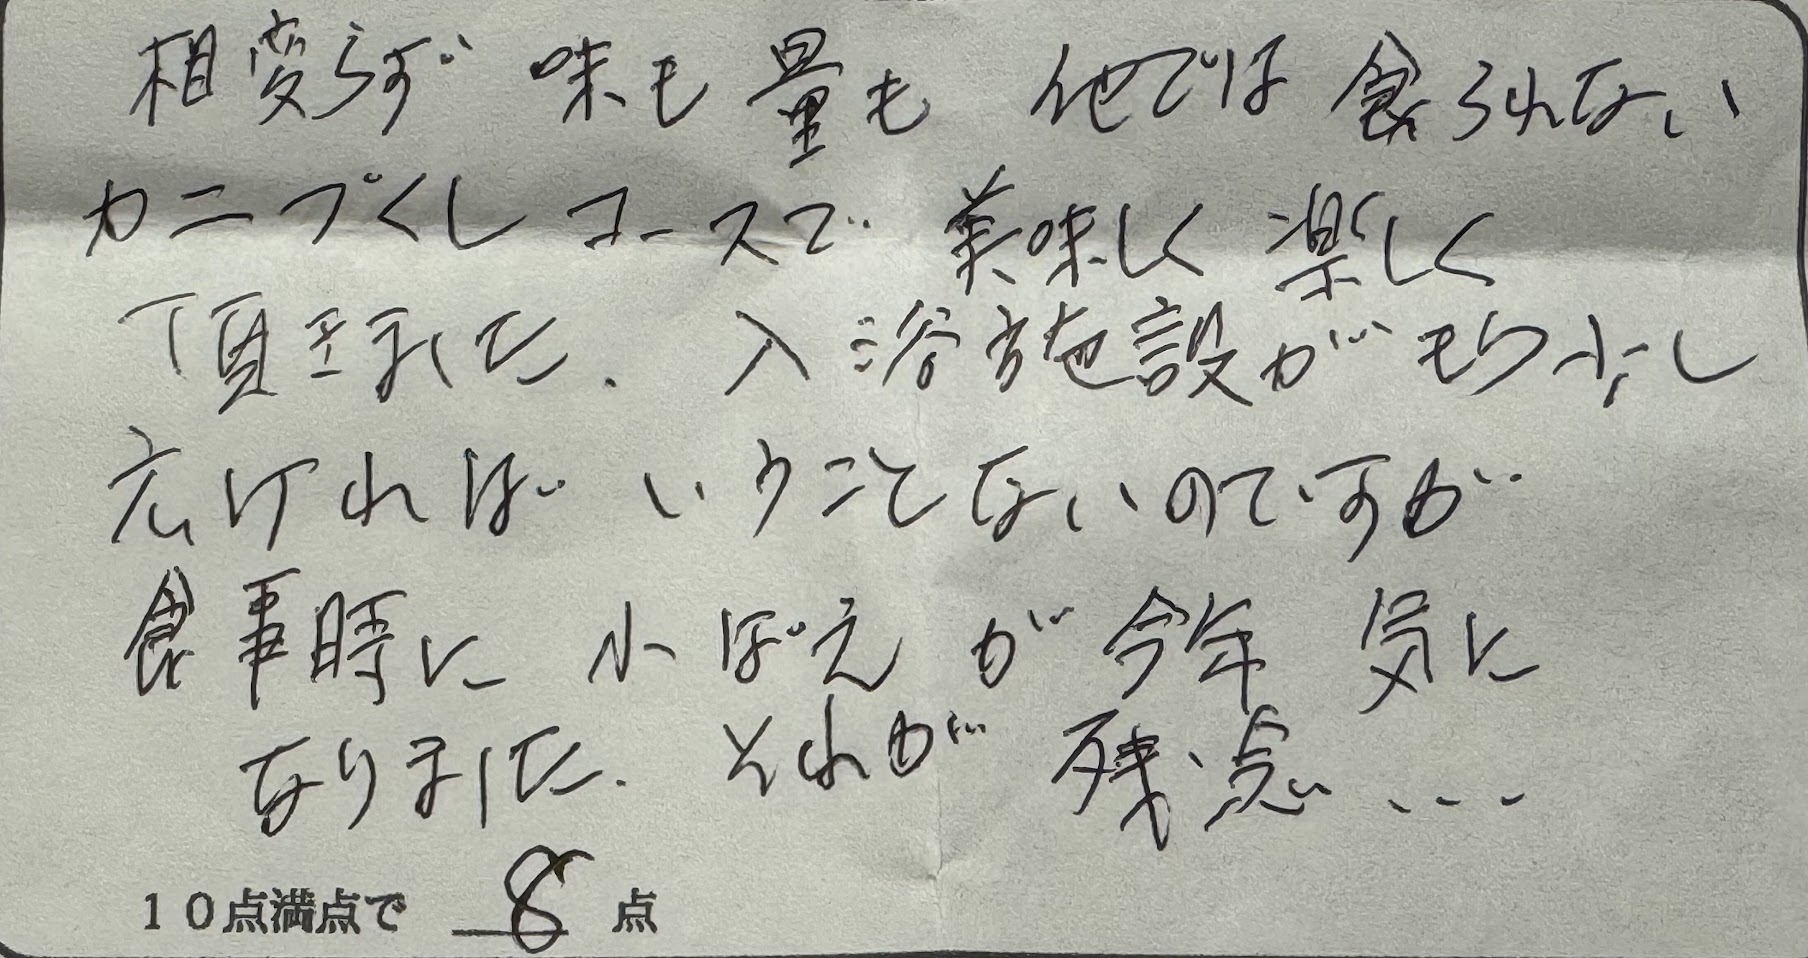 相変らず 味も量も 他では食られない
カニづくしコースで 美味しく楽しく
頂きました. 入浴施設がもう少し
広ければ いうことないのですが
食事時に 小ばえが今年 気に
なりました. それが 残念....
10点満点で 8 点